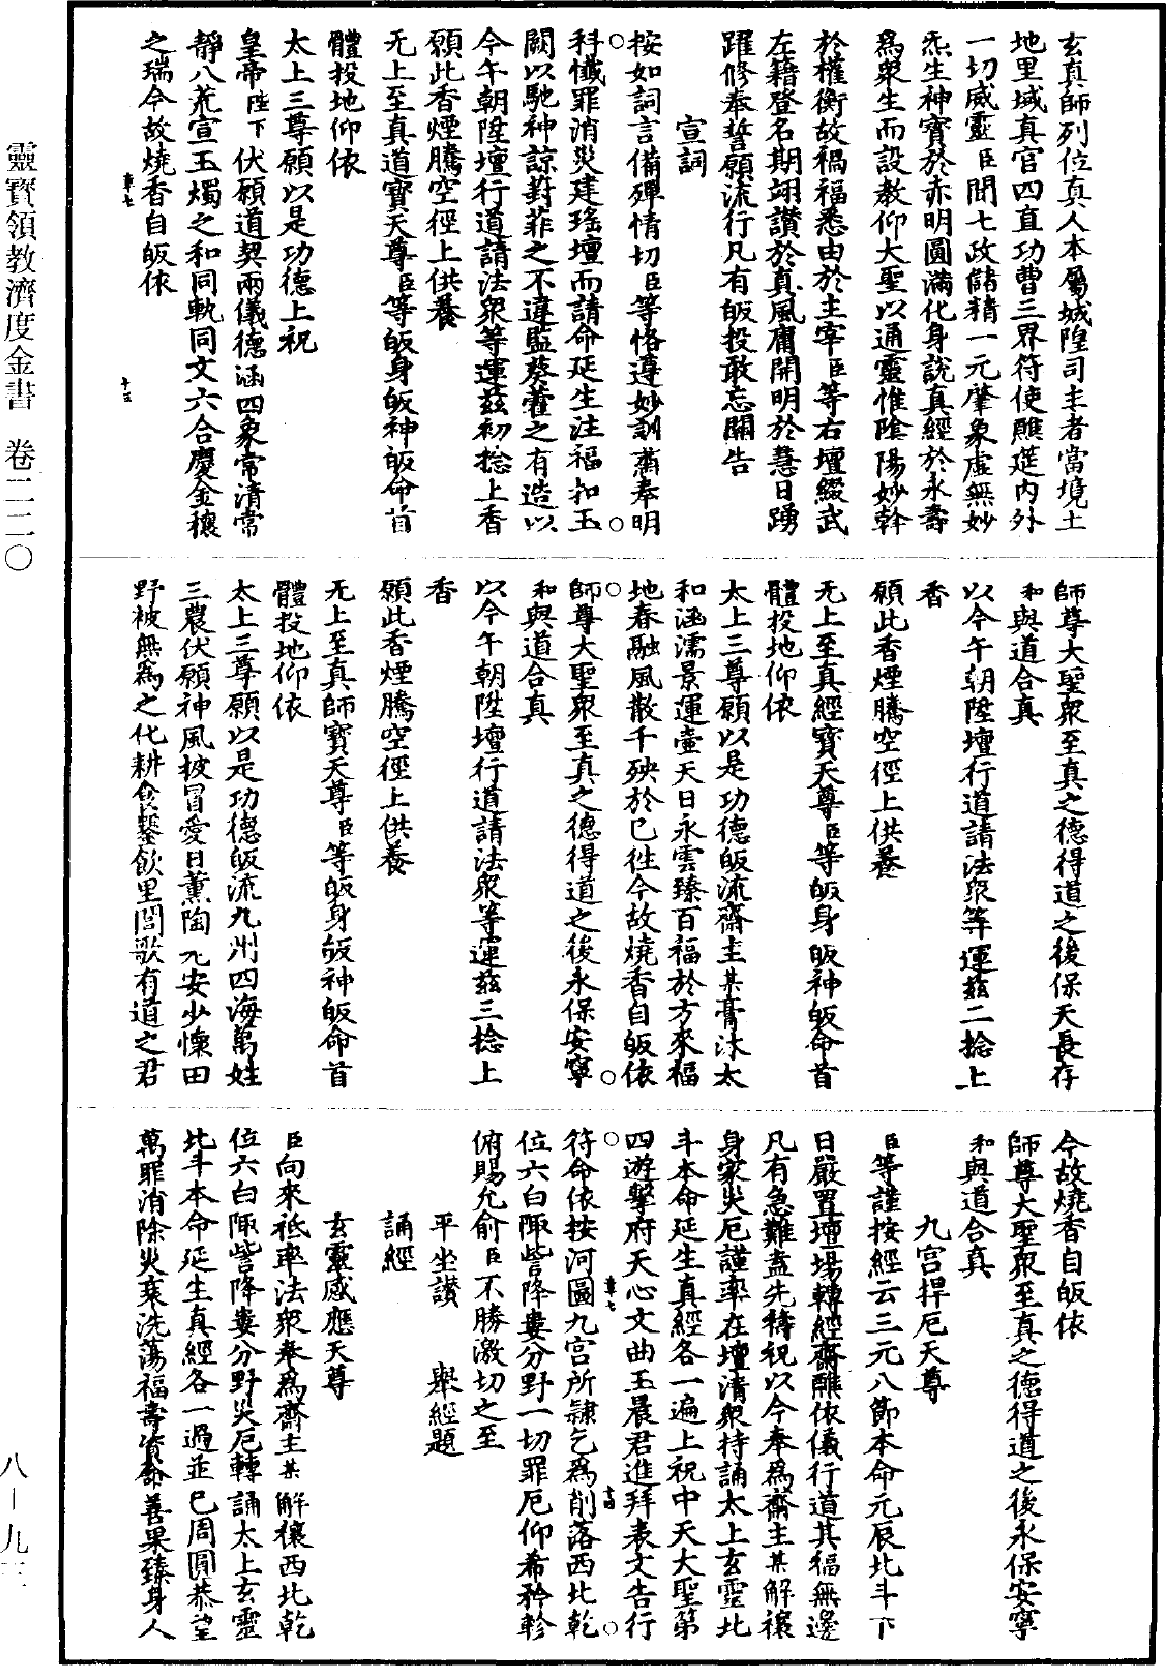 玄真師列位真人本屬城隍司主者當境土
地里域真官四直功曹三界符使醮筵內外
一切威靈臣聞七政儲精一元肇象虛無妙
炁生神寶於赤明圓滿化身說真經於永壽
為衆生而設教仰大聖以通靈惟陰陽妙斡
於權衡故禍福悉由於主宰臣等右壇綴武
左籍登名期翊讚於真風庸開明於慧日踴
躍修奉誓願流行凡有皈投敢忘關告
宣詞
按如詞言備殫情切臣等恪遵妙訓肅奉明
科懺罪消災建瑤壇而請命延生注福扣玉
闕以馳神諒葑菲之不違監葵藿之有造以
今午朝陞壇行道請法衆等運茲初捻上香
願此香煙騰空徑上供養
无上至真道寶天尊臣等皈身皈神皈命首
體投地仰依
太上三尊願以是功德上祝
皇帝陛下伏願道契兩儀德涵四象常清常
靜八荒宣玉燭之和同軌同文六合慶金穰
之瑞今故燒香自皈依
師尊大聖衆至真之德得道之後保天長存
和與道合真
以今午朝陞壇行道請法衆等運茲二捻上
香
願此香煙騰空徑上供養
无上至真經寶天尊臣等皈身皈神皈命首
體投地仰依
太上三尊願以是功德皈流齋主某膏沐太
和涵濡景運壺天日永雲臻百福於方來福
地春融風散千殃於已往今故燒香自皈依
師尊大聖衆至真之德得道之後永保安寧
和與道合真
以今午朝陞壇行道請法衆等運茲三捻上
香
願此香煙騰空徑上供養
无上至真師寶天尊臣等皈身皈神皈命首
體投地仰依
太上三尊願以是功德皈流九州四海萬姓
三農伏願神風披冒愛日薰陶九安少懷田
野被無為之化耕食鑿飲里閭歌有道之君
今故燒香自皈依
師尊大聖衆至真之德得道之後永保安寧
和與道合真
九宮捍厄天尊
臣等謹按經云三元八節本命元辰北斗下
日嚴置壇場轉經齋醮依儀行道其福無邊
凡有急難盍先禱祝以今奉為齋主某解禳
身家災厄謹率在壇清衆持誦太上玄靈北
斗本命延生真經各一遍上祝中天大聖第
四遊擊府天心文曲玉晨君進拜表文告行
符命依按河圖九宮所隸乞為削落西北乾
位六白陬訾降婁分野一切罪厄仰希矜軫
俯賜允俞臣不勝激切之至
平坐讃　舉經題
誦經
玄靈感應天尊
臣向來祗率法衆奉為齋主某解禳西北乾
位六白陬訾降婁分野災厄轉誦太上玄靈
北斗本命延生真經各一過並已周圓恭望
萬罪消除災衰洗蕩福壽資命善果臻身人
靈寶領教濟度金書　卷二二〇